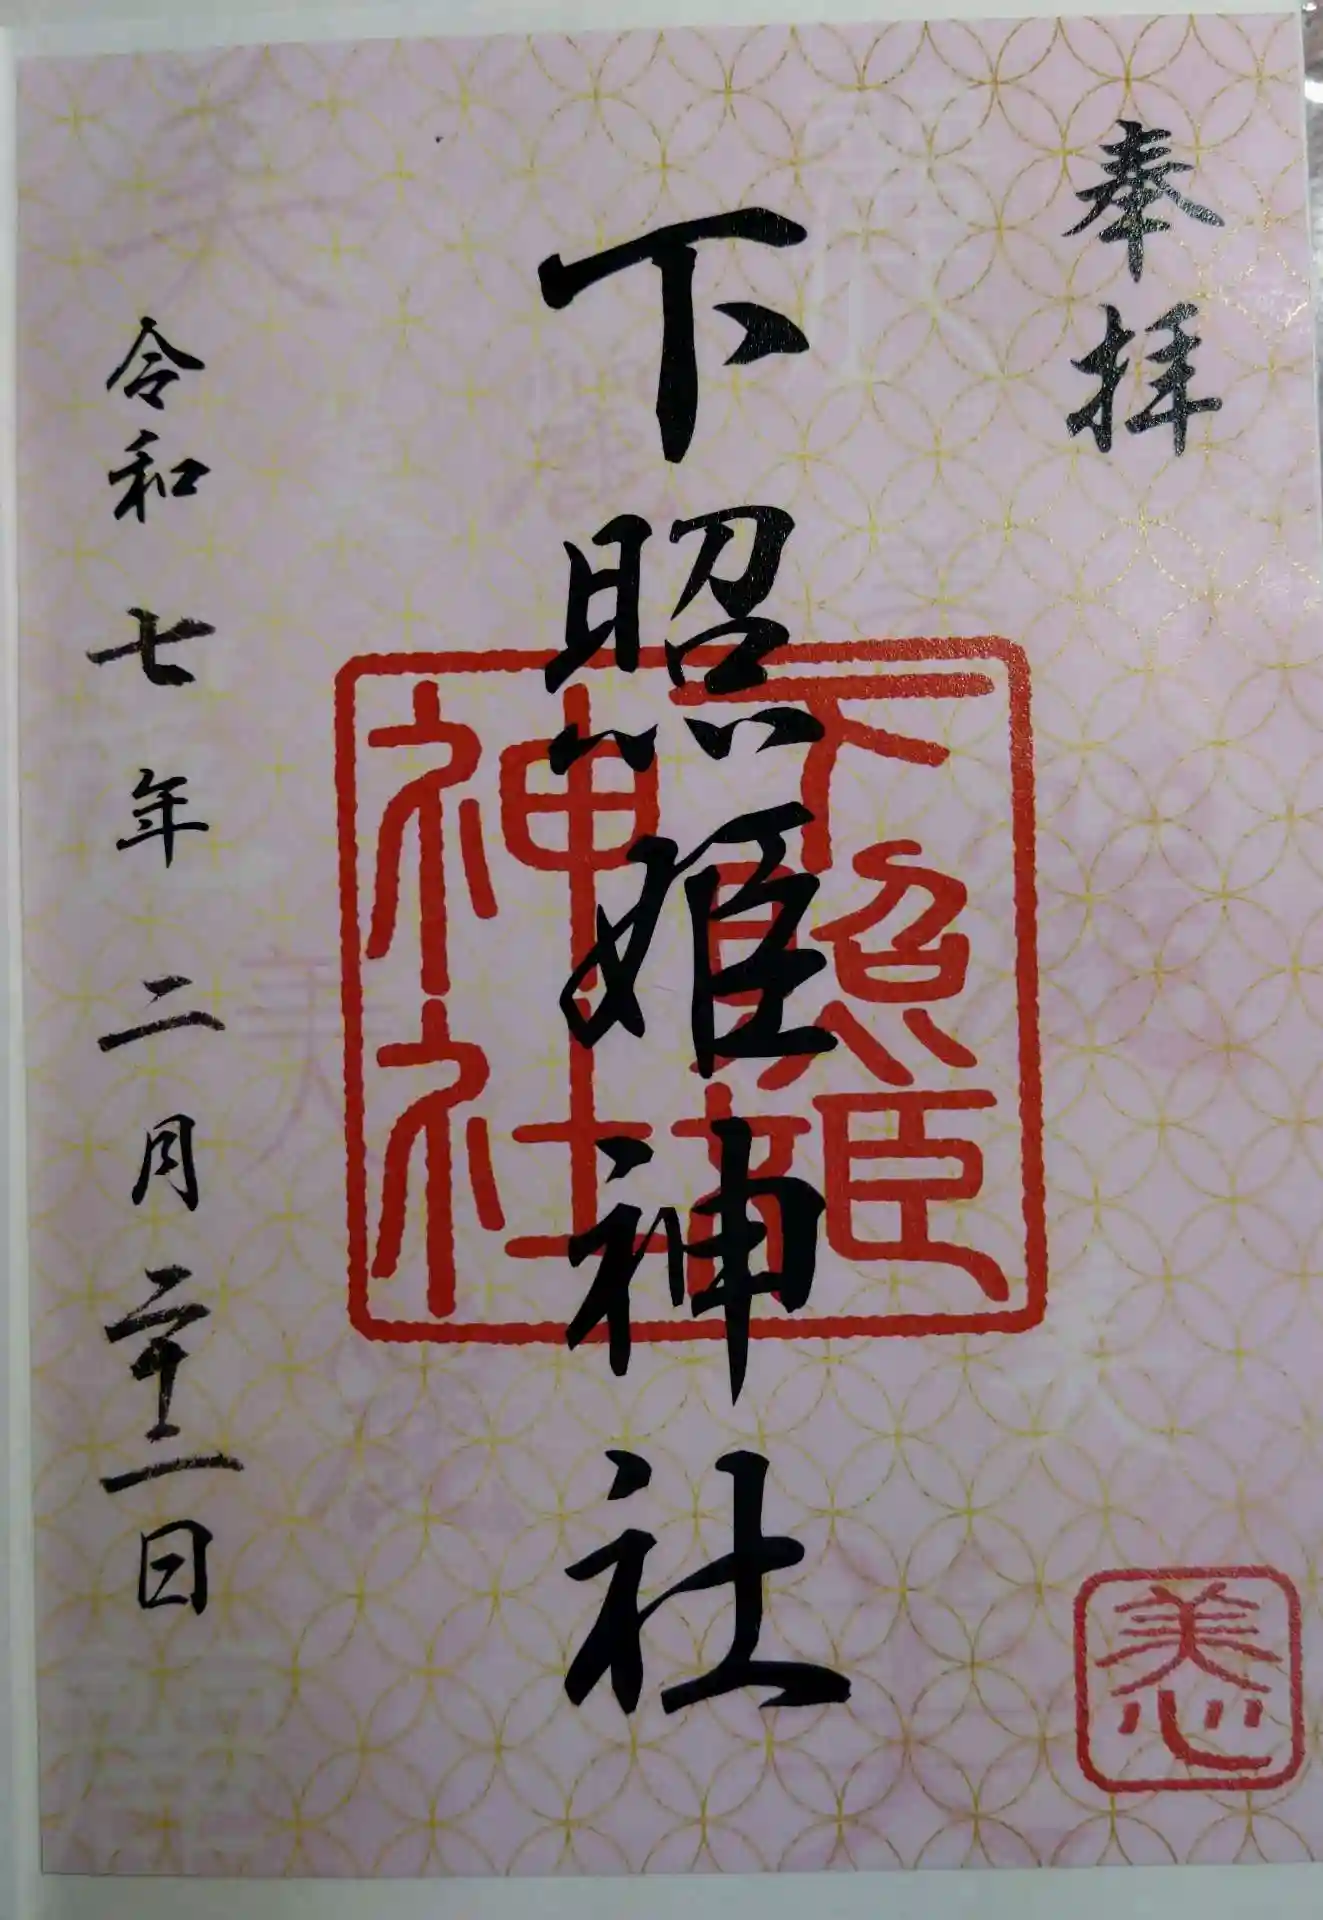 奉拝
下照姫神社
下照姫
神社
令和七年二月二十一日
美心
美